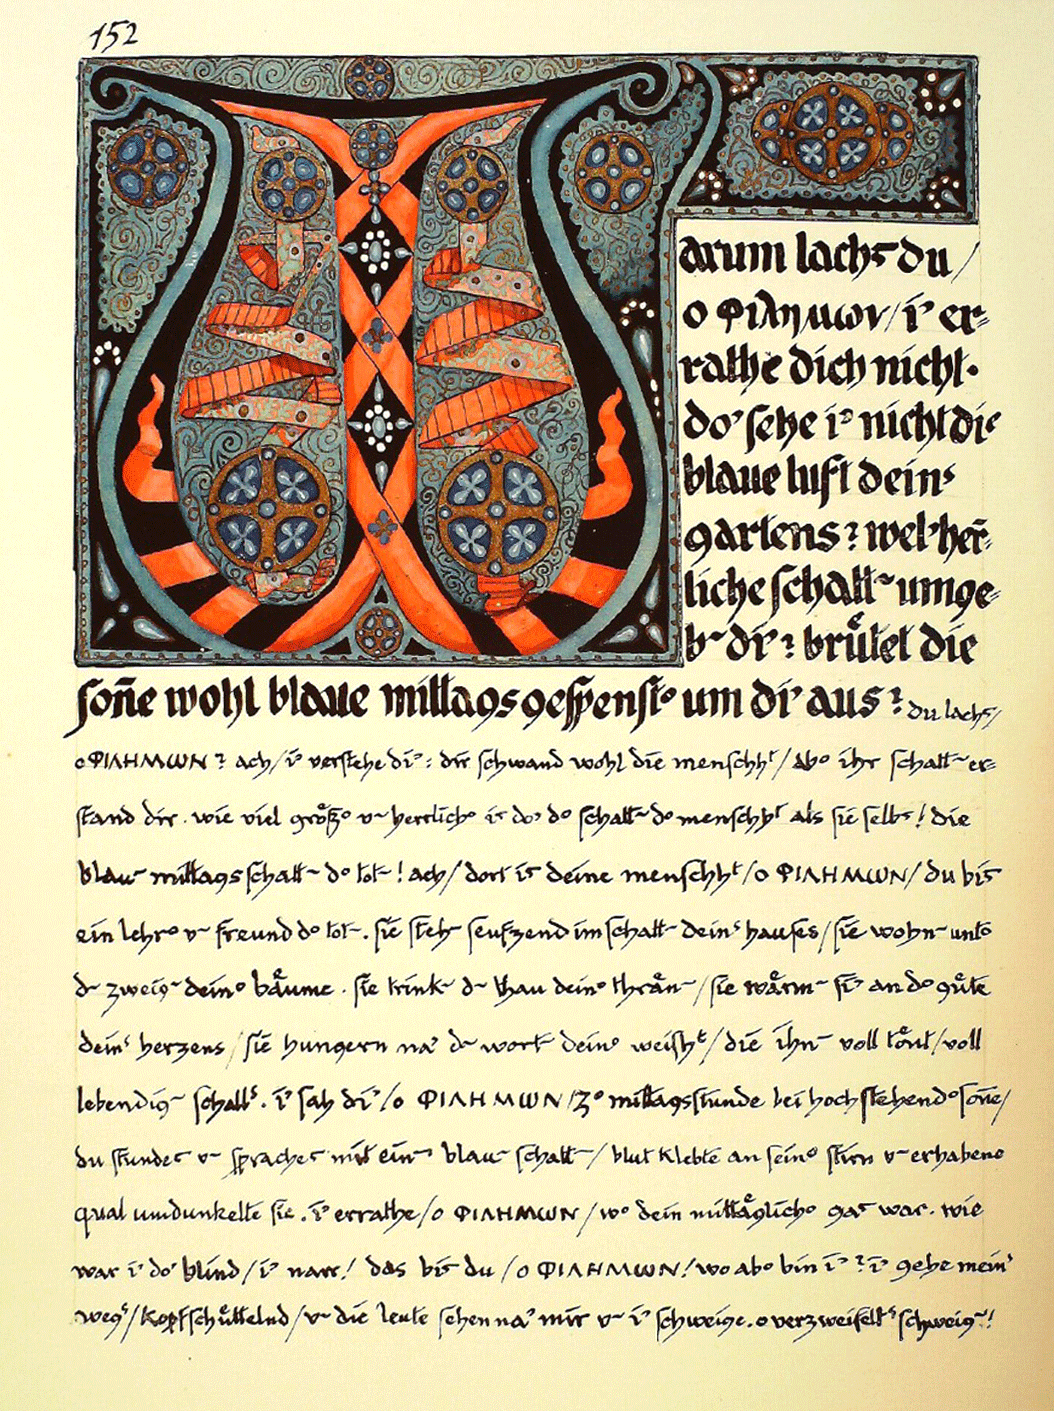 152
arum lachst du /
o Φιλημων / i' er=
rathe dich nicht.
do' sehe i' nicht die
blaue luft dein'
gartens? wel'her̄=
liche schatt~ umge=
b~ di'? brůtet die
son̄e wohl blaue mittagsgespenst° um di' aus? du lachst/
o ΦΙΛΗΜΩΝ? ach/ i' verstehe di': dir schwand wohl die menschht/ ab° ihr schatt~ er=
stand dir. wie viel größ° v~ herrlich° ist do' d° schatt~ d° menschht als sie selbst! die
blau~ mittagsschatt~ d° tot~! ach/ dort ist deine menschht/ o ΦΙΛΗΜΩΝ/ du bist
ein lehr° v~ freund d° tot~. sie steh~ seufzend im schatt~ dein' hauses/ sie wohn~ unt°
d~ zweig~ dein° bäume. sie trink~ d~ thau dein° thrän~/ sie wärm~ si' an d° güte
dein' herzens/ sie hungern na' d~ wort~ dein° weisht/ die ihn~ voll tönt/ voll
lebendig~ schalls. i' sah di'/ o ΦΙΛΗΜΩΝ/ z° mittagsstunde bei hochstehend° son̄e/
du standest v~ sprachest mit ein~ blau~ schatt~/ blut klebte an sein° stirn v~ erhabene
qual umdunkelte sie. i' errathe/ o ΦΙΛΗΜΩΝ/ w° dein mittäglich° gast war. wie
war i' do' blind/ i' narr! das bist du/ o ΦΙΛΗΜΩΝ! wo ab° bin i'? i' gehe mein'
wegs/ kopfschüttelnd/ v~ die leute sehen na' mir v~ i' schweige. o verzweifelts schweig~!